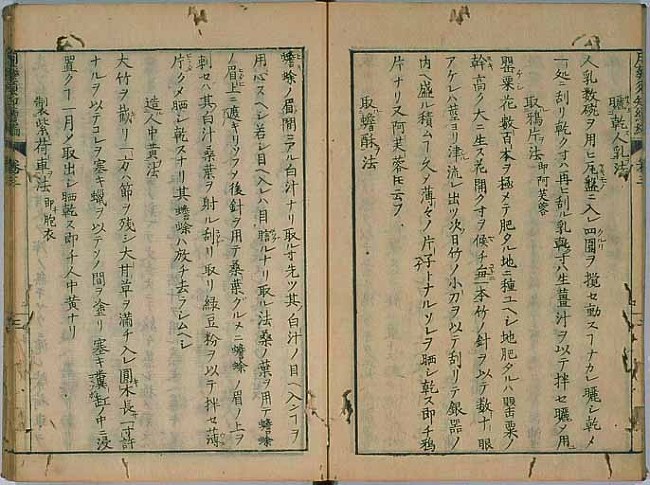 曬乾人乳法
人乳数碗ヲ用ヒ瓦盤ニ入レ四囲ヲ攪セ動スヿナカレ曬シ乾メ
一処ニ刮リ乾クヿハ再ヒ刮ル乳 寸ハ生薑汁ヲ以テ拌セ曬ヲ用
取鴉片法 即阿芙蓉
罌粟花数百本ヲ極メテ肥タル地ニ種ユヘシ地肥タルハ罌粟ノ
幹高ク大ニ生ス花開クヲ候チ毎一本竹ノ針ヲ以テ数十眼
アケレハ ヨリ津流レ出ツ次日竹ノ小刀ヲ以テ刮リテ銀器ノ
内ヘ盛ル積ムヿ久ノ薄キノ片子トナルソレヲ晒シ乾ス即チ鴉
片ナリ又阿芙蓉𪜈云フ
取蟾酥法
蟾蜍ノ眉間ニアル白汁ナリ取ル寸先ツ其白汁ノ目ヘ入ヿヲ
用心スヘシ若シ目ヘ入レハ目瞎ルナリ取ル法桑ノ葉ヲ用テ蟾蜍
ノ眉上ニ破キリソノ後針ヲ用テ桑葉グルメニ蟾蜍ノ眉ノ上ヲ
刺セハ其白汁桑葉ヲ射ル刮リ取リ緑豆粉ヲ以テ拌セ薄
片クメ晒シ乾スナリ其蟾蜍ハ放チ去ラシムヘシ
造人中黄法
大竹ヲ截リ一方ハ節ヲ残シ大甘草ヲ満チ入レ圓木長一寸許
ナルヲ以テコレヲ塞キ蠟ヲ以テソノ間ヲ塗リ塞キ糞缸ノ中ニ浸
置クヿ一月メ取出シ晒乾ス即チ人中黄ナリ
製紫荷車法 即胞衣